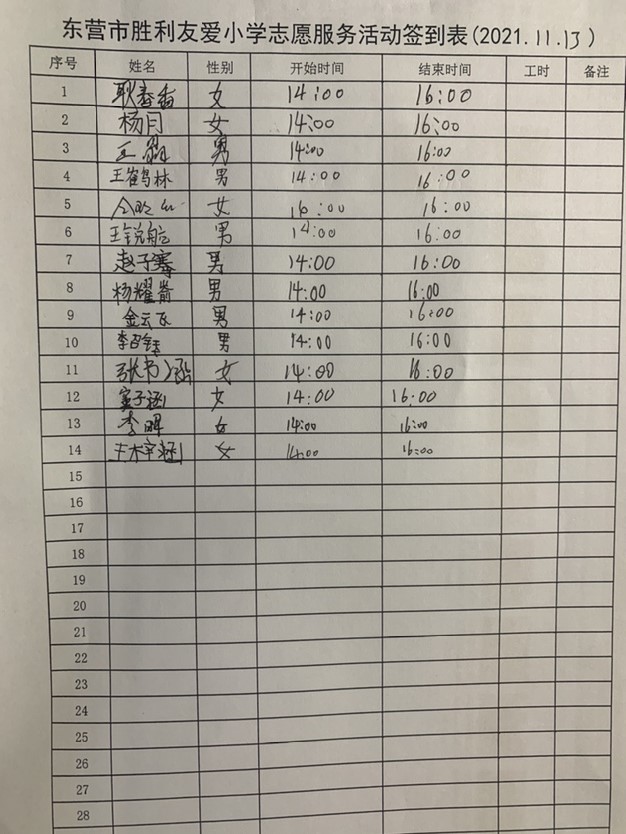 东营市胜利友爱小学志愿服务活动签到表(2021.11.13)
序号 姓名 性别 开始时间 结束时间 工时 备注
1 耿春香 女 14:00 16:00
2 杨月 女 14:00 16:00
3 王 男 14:00 16:00
4 王鹤林 男 14:00 16:00
5 女 16:00 16:00
6 王锐航 男 14:00 16:00
7 赵子骞 男 14:00 16:00
8 杨耀 男 14:00 16:00
9 金云飞 男 14:00 16:00
10 李 男 14:00 16:00
11 张书涵 女 14:00 16:00
12 子涵 女 14:00 16:00
13 李晖 女 14:00 16:00
14 王梓涵 女 14:00 16:00
15
16
17
18
19
20
21
22
23
24
25
26
27
28